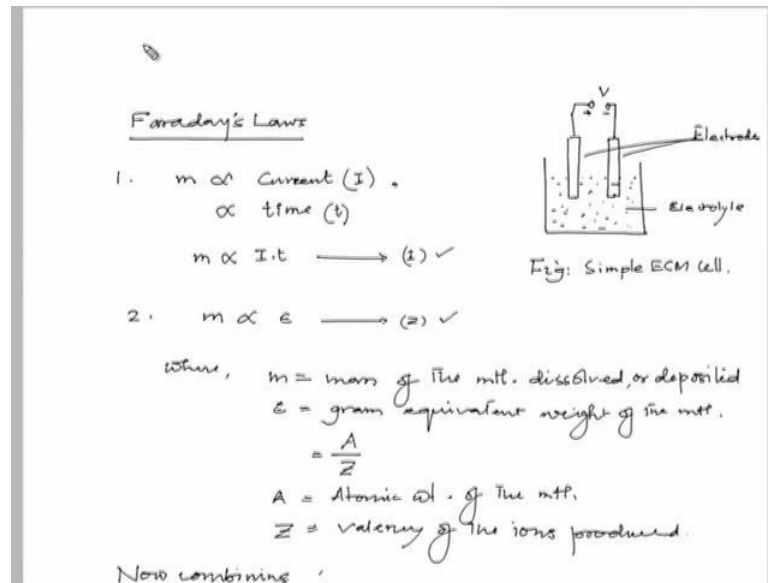 Faraday's Laws
V
+ -
Electrode
Electrolyte
Fig: Simple ECM Cell.
1. m ∝ Current (I).
∝ time (t)
m ∝ I.t ⟶ (1) ✓
2. m ∝ ε ⟶ (2) ✓
where, m = mass of the mtl. dissolved, or deposited
ε = gram equivalent weight of the mtl.
= A/Z
A = Atomic wt. of the mtl.
Z = valency of the ions produced.
Now combining